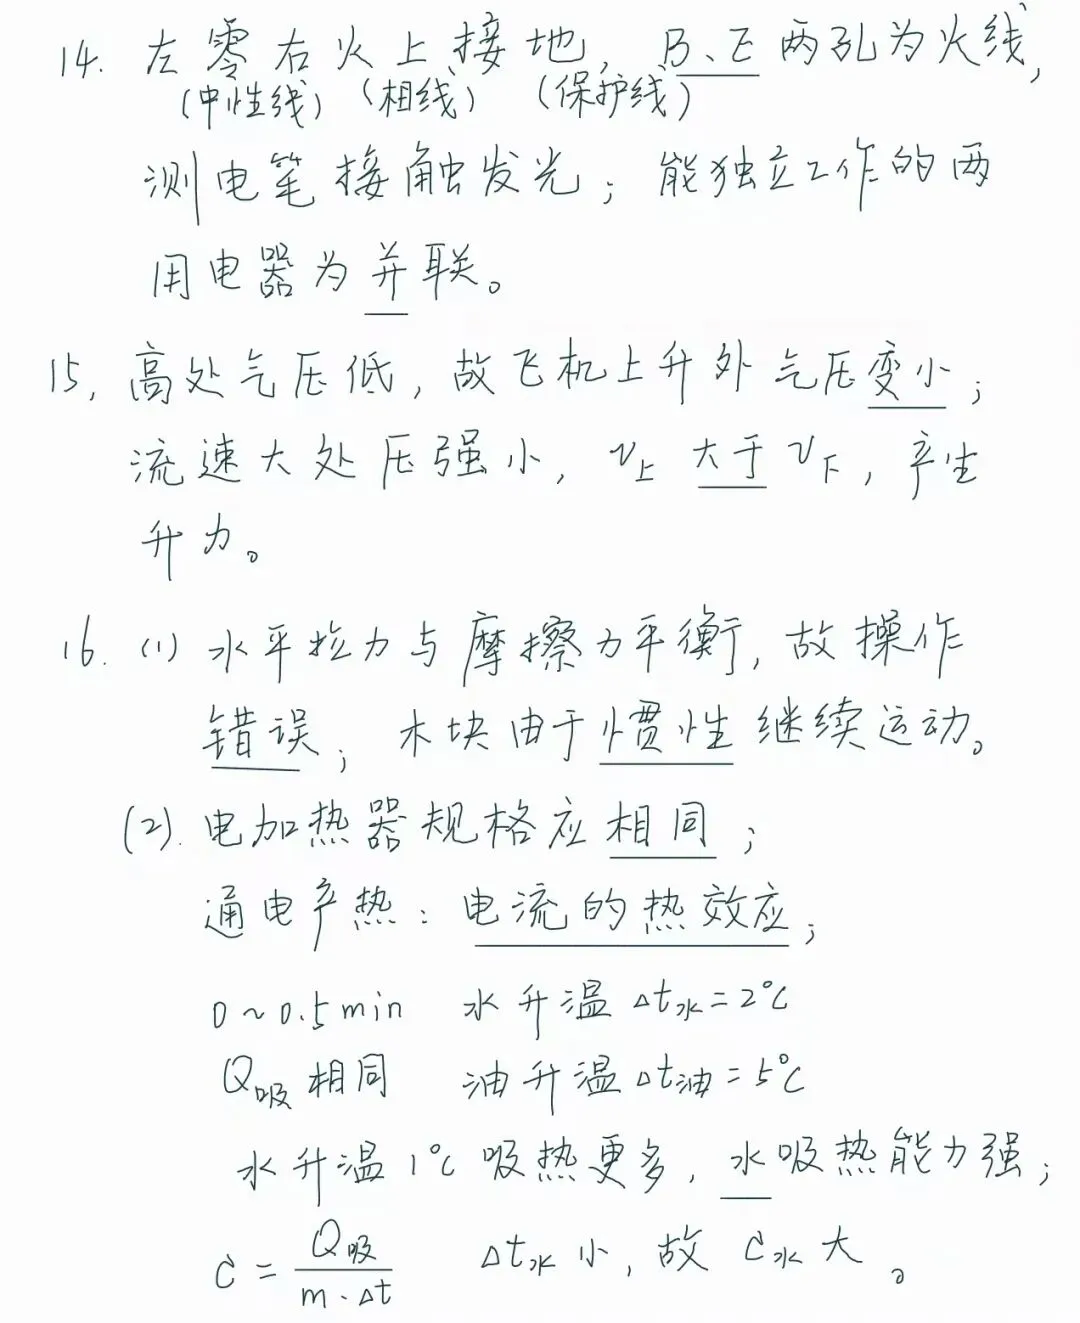 14. 左零右火上接地，B、E两孔为火线，
(中性线) (相线) (保护线)
测电笔接触发光；能独立工作的两
用电器为并联。
15. 高处气压低，故飞机上升外气压变小；
流速大处压强小，v上大于v下，产生
升力。
16. (1) 水平拉力与摩擦力平衡，故操作
错误；木块由于惯性继续运动。
(2). 电加热器规格应相同；
通电产热：电流的热效应；
0~0.5min 水升温 Δt水=2℃
Q吸相同 油升温 Δt油=5℃
水升温1℃吸热更多，水吸热能力强；
C = Q吸/(m·Δt) Δt水小，故C水大。